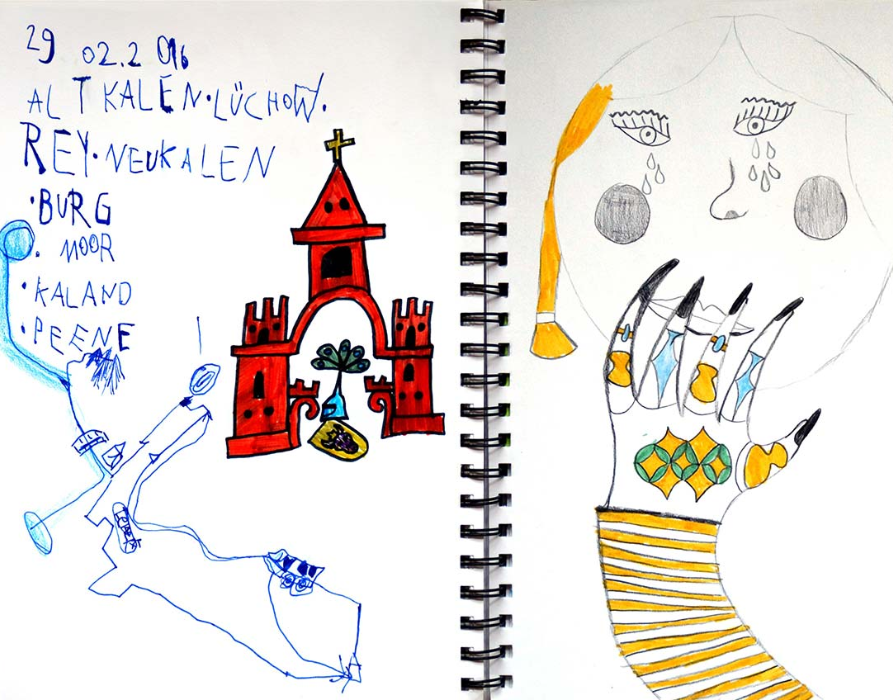 29 02.2016
ALTKALEN·LÜCHOW.
REY·NEUKALEN
·BURG
·MOOR
·KALAND
·PEENE